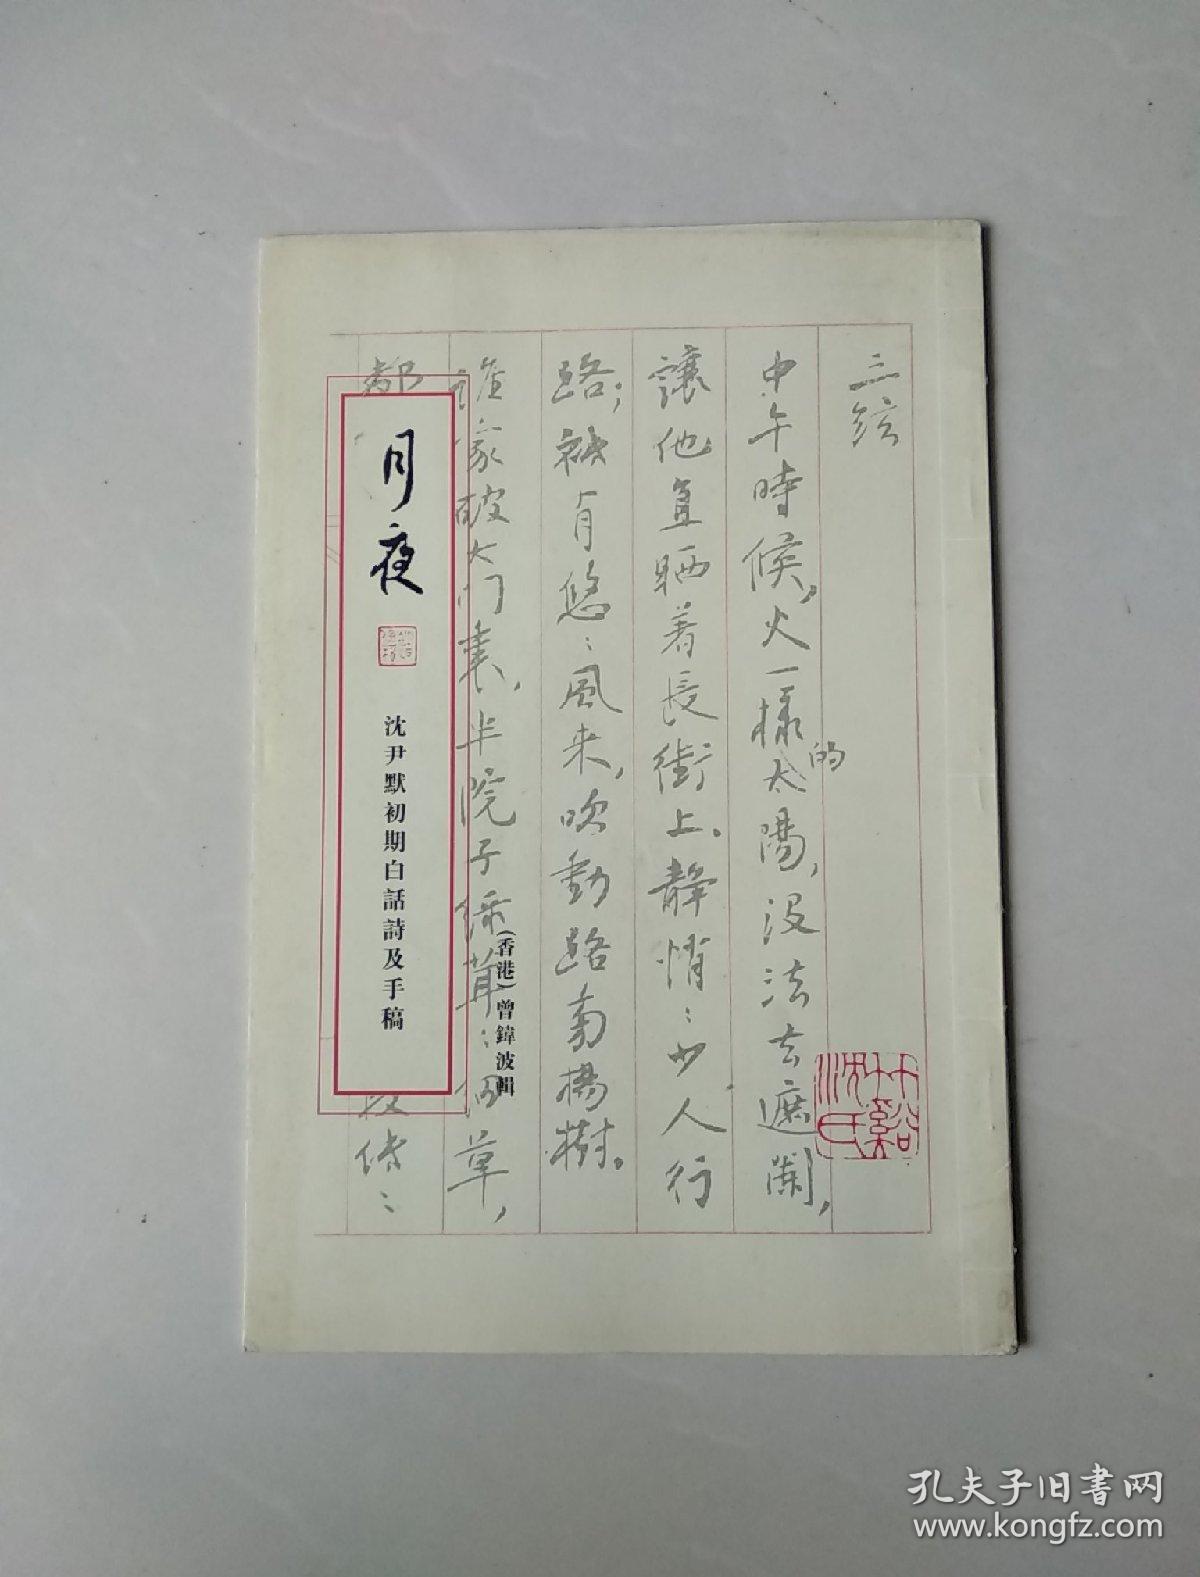 三弦
中午時候，火一樣的太陽，沒法去遮闌，
讓他直晒着長街上。靜悄：少人行
路；祇有悠：風来，吹動路旁楊樹。
誰家破大门裏，半院子綠茸：細草，
都
段牆：
月夜
沈尹默初期白話詩及手稿
（香港）曾鍏波輯
竹谿沈氏
孔夫子旧书网
www.kongfz.com